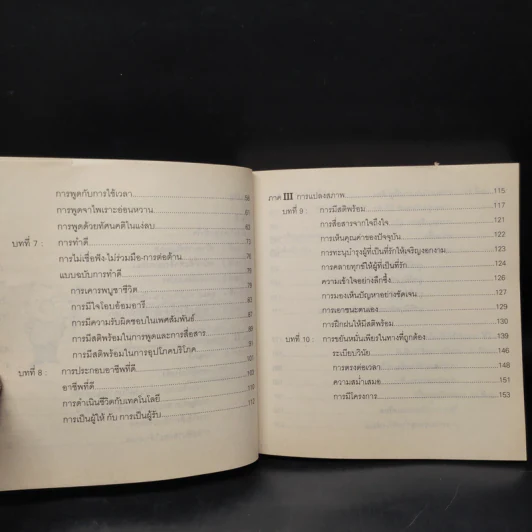 การพูดกับการใช้เวลา
การพูดจาไพเราะอ่อนหวาน
การพูดด้วยทัศนคติในแง่ลบ
บทที่ 7 : การทำดี
การไม่เชื่อฟัง-ไม่ร่วมมือ-การต่อต้าน
แบบฉบับการทำดี
การเคารพบูชาชีวิต
การมีใจโอบอ้อมอารี
การมีความรับผิดชอบในเพศสัมพันธ์
การมีสติพร้อมในการพูดและการสื่อสาร
การมีสติพร้อมในการอุปโภคบริโภค
บทที่ 8 : การประกอบอาชีพที่ดี
อาชีพที่ดี
การดำเนินชีวิตกับเทคโนโลยี 110
การเป็นผู้ให้ กับ การเป็นผู้รับ 112
ภาค III การแปลงสภาพ 115
บทที่ 9 : การมีสติพร้อม 117
การสื่อสารจากใจถึงใจ 121
การเห็นคุณค่าของปัจจุบัน 122
การทะนุบำรุงผู้ที่เป็นที่รักให้เจริญงอกงาม 123
การคลายทุกข์ให้ผู้ที่เป็นที่รัก 124
ความเข้าใจอย่างลึกซึ้ง 126
การมองเห็นปัญหาอย่างชัดเจน 127
การเอาชนะตนเอง 131
การฝึกฝนให้มีสติพร้อม 130
บทที่ 10 : การขยันหมั่นเพียรในทางที่ถูกต้อง 139
ระเบียบวินัย 146
การตรงต่อเวลา 148
ความสม่ำเสมอ 151
การมีโครงการ 153